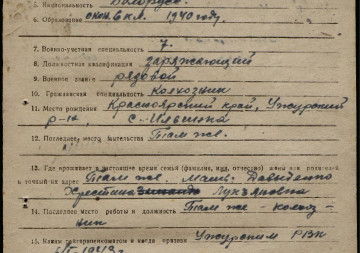 5. Национальность Белорус.
6. Образование окон. 6 кл. 1940 году.
7. Военно-учетная специальность 7.
8. Должностная квалификация заряжающий
9. Военное звание рядовой
10. Гражданская специальность колхозник
11. Место рождения Красноярский край, Ужурский
р-н, с. Ильинка
12. Последнее место жительства Там же.
13. Где проживает в настоящее время семья (фамилия, имя, отчество) жены или родителей
и точный их адрес Там же. Мать: Давиденко
Христина Лукьяновна
14. Последнее место работы и должность Там же - колхоз-
ник
15. Каким райгорвоенкоматом и когда призван Ужурским РВК